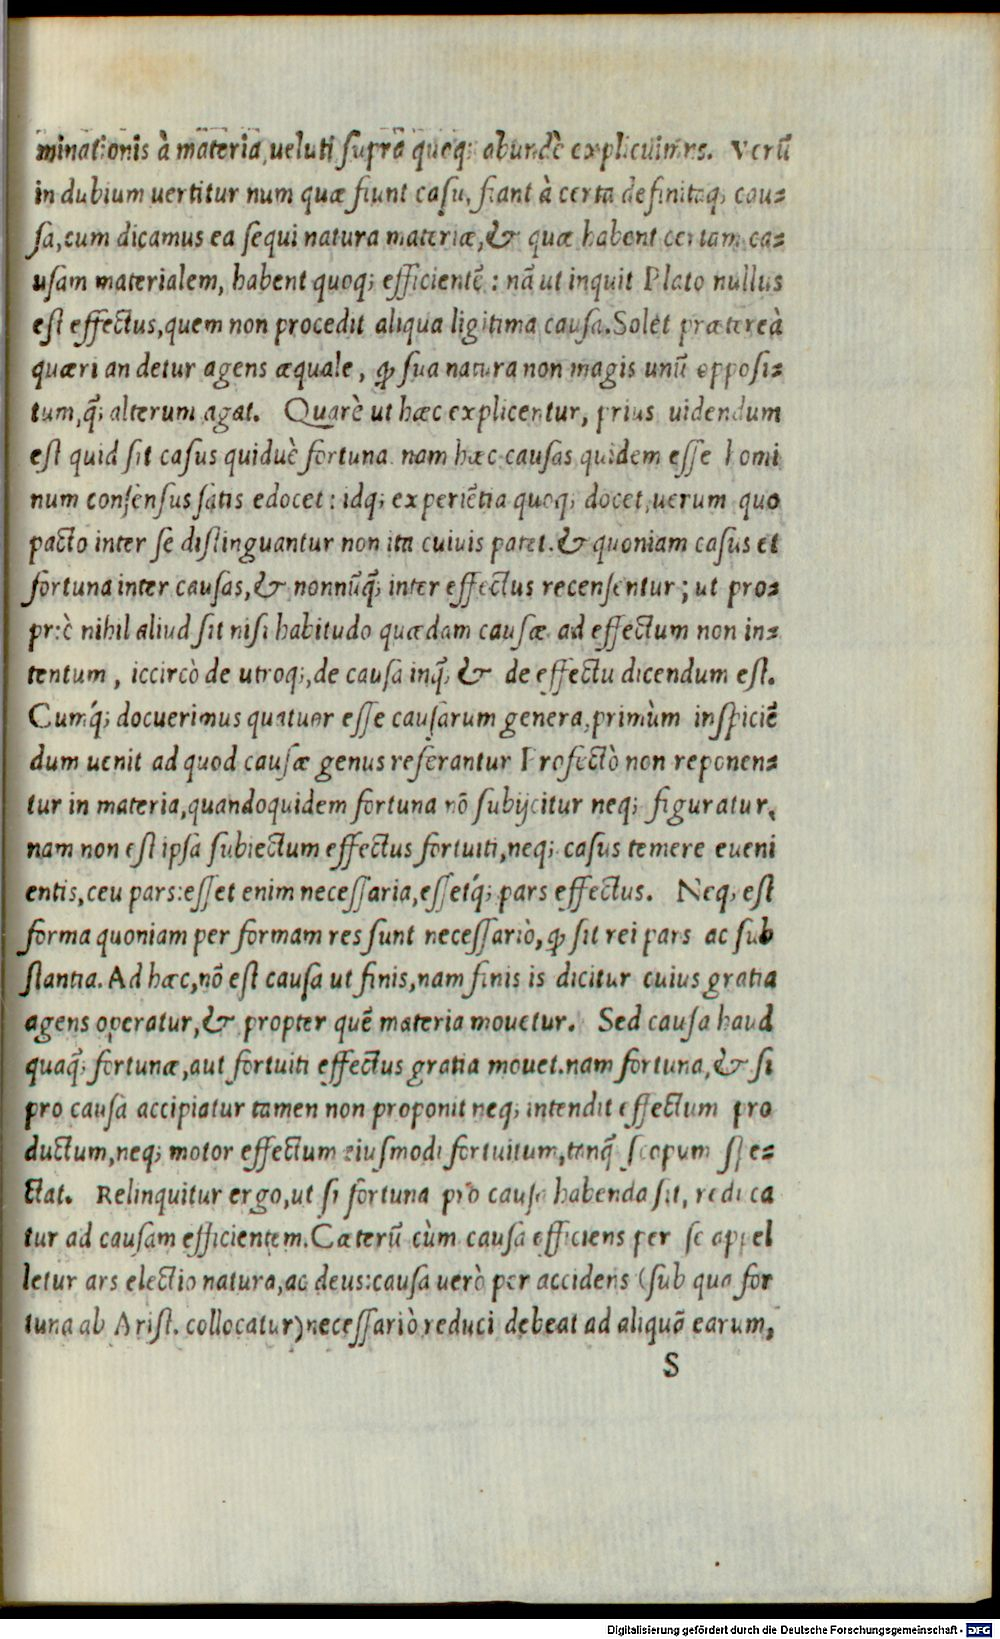 minationis à materia, ueluti supra quoq; abundè explicuimus. Verū
in dubium uertitur num quæ fiunt casu, fiant à certa definitaq; cau=
sa, cum dicamus ea sequi natura materiæ, & quæ habent certam ca=
usam materialem, habent quoq; efficientē: nā ut inquit Plato nullus
est effectus, quem non procedit aliqua ligitima causa. Solet prætereà
quæri an detur agens æquale, ꝙ sua natura non magis unū opposi=
tum, q̃; alterum agat. Quarè ut hæc explicentur, prius uidendum
est quid sit casus quiduè fortuna. nam hæc causas quidem esse homi
num consensus satis edocet: idq; experiētia quoq; docet, uerum quo
pacto inter se distinguantur non ita cuiuis patet. & quoniam casus et
fortuna inter causas, & nonnūq̃; inter effectus recensentur; ut pro=
priè nihil aliud sit nisi habitudo quædam causæ ad effectum non in=
tentum, iccircò de utroq;, de causa inq̃; & de effectu dicendum est.
Cumq́; docuerimus quatuor esse causarum genera, primùm inspiciē
dum uenit ad quod causæ genus referantur Profectò non reponen=
tur in materia, quandoquidem fortuna nō subijcitur neq; figuratur,
nam non est ipsa subiectum effectus fortuiti, neq; casus temere eueni
entis, ceu pars: esset enim necessaria, essetq́; pars effectus. Neq; est
forma quoniam per formam res sunt necessariò, ꝙ sit rei pars ac sub
stantia. Ad hæc, nō est causa ut finis, nam finis is dicitur cuius gratia
agens operatur, & propter quē materia mouetur. Sed causa haud
quaq̃; fortunæ, aut fortuiti effectus gratia mouet. nam fortuna, & si
pro causa accipiatur tamen non proponit neq; intendit effectum pro
ductum, neq; motor effectum eiusmodi fortuitum, tanq̃ scopum spe=
ctat. Relinquitur ergo, ut si fortuna pro causa habenda sit, redica
tur ad causam efficientem. Cæterū cùm causa efficiens per se appel
letur ars electio natura, ac deus: causa uerò per accidens (sub qua for
tuna ab Arist. collocatur) necessariò reduci debeat ad aliquā earum,
S
Digitalisierung gefördert durch die Deutsche Forschungsgemeinschaft - DFG